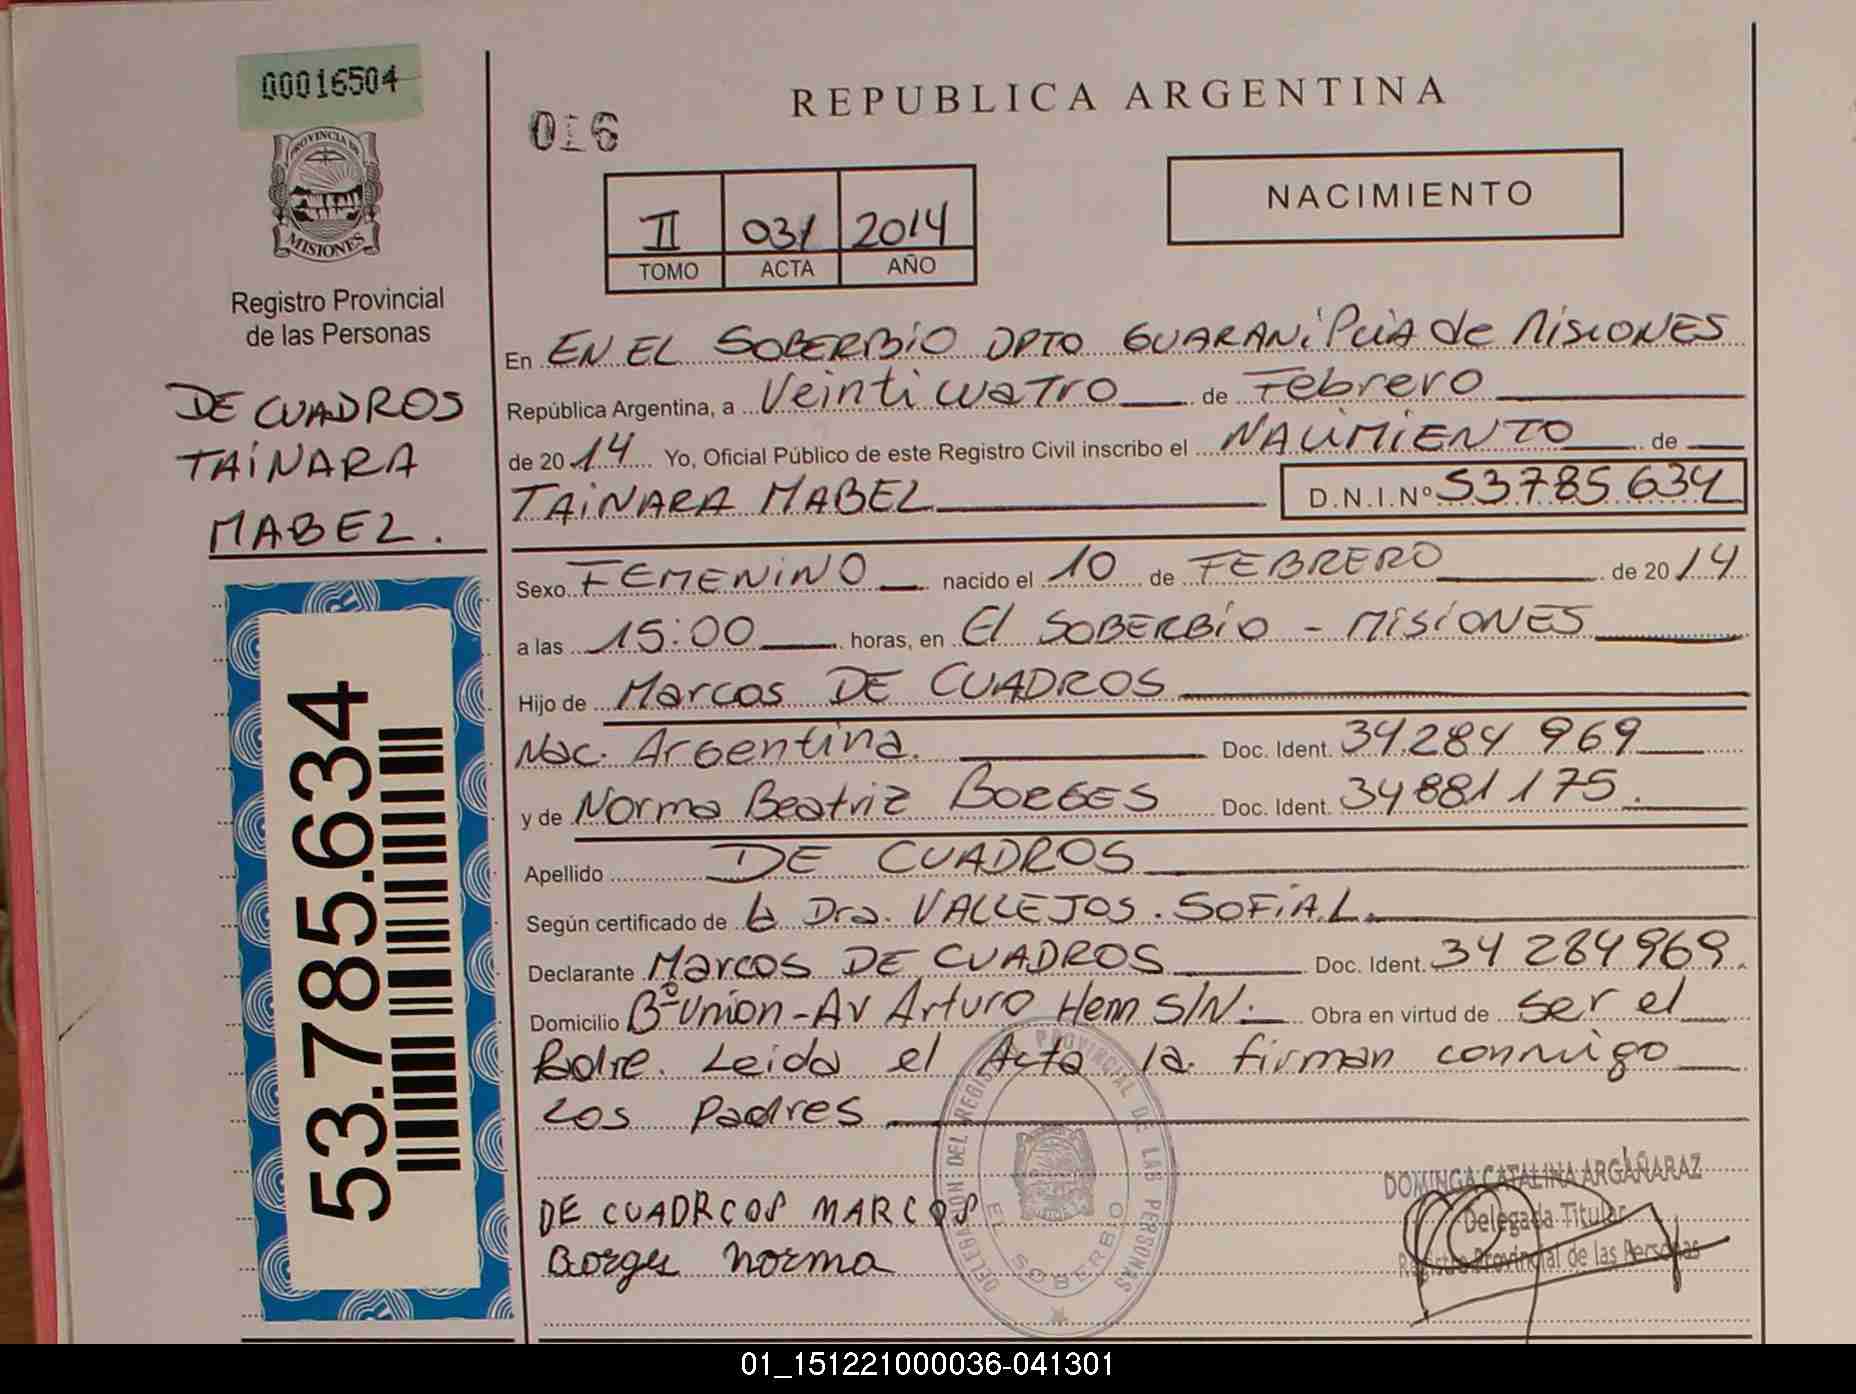 00016504
PROVINCIA DE
MISIONES
Registro Provincial
de las Personas
DE CUADROS
TAINARA
MABEL.
53.785.634
016
REPUBLICA ARGENTINA
II 031 2014
TOMO ACTA AÑO
NACIMIENTO
En EN EL SOBERBIO DPTO GUARANI Pcia de MISIONES
República Argentina, a Veinticuatro de Febrero
de 2014 Yo, Oficial Público de este Registro Civil inscribo el NACIMIENTO de
TAINARA MABEL D.N.I.Nº 53785634
Sexo FEMENINO nacido el 10 de FEBRERO de 2014
a las 15:00 horas, en El SOBERBIO - MISIONES
Hijo de Marcos DE CUADROS
Nac. Argentina. Doc. Ident. 34284969
y de Norma Beatriz BORGES Doc. Ident. 34881175.
Apellido DE CUADROS
Según certificado de la Dra. VALLEJOS. SOFIA L.
Declarante Marcos DE CUADROS Doc. Ident. 34284969.
Domicilio Bº Union - Av Arturo Henn S/N. Obra en virtud de ser el
Padre. Leida el Acta la firman conmigo
los padres
DELEGACION DEL REGISTRO PROVINCIAL DE LAS PERSONAS
EL SOBERBIO
DE CUADROS MARCOS
Borges Norma
DOMINGA CATALINA ARGAÑARAZ
Delegada Titular
Registro Provincial de las Personas
01_151221000036-041301